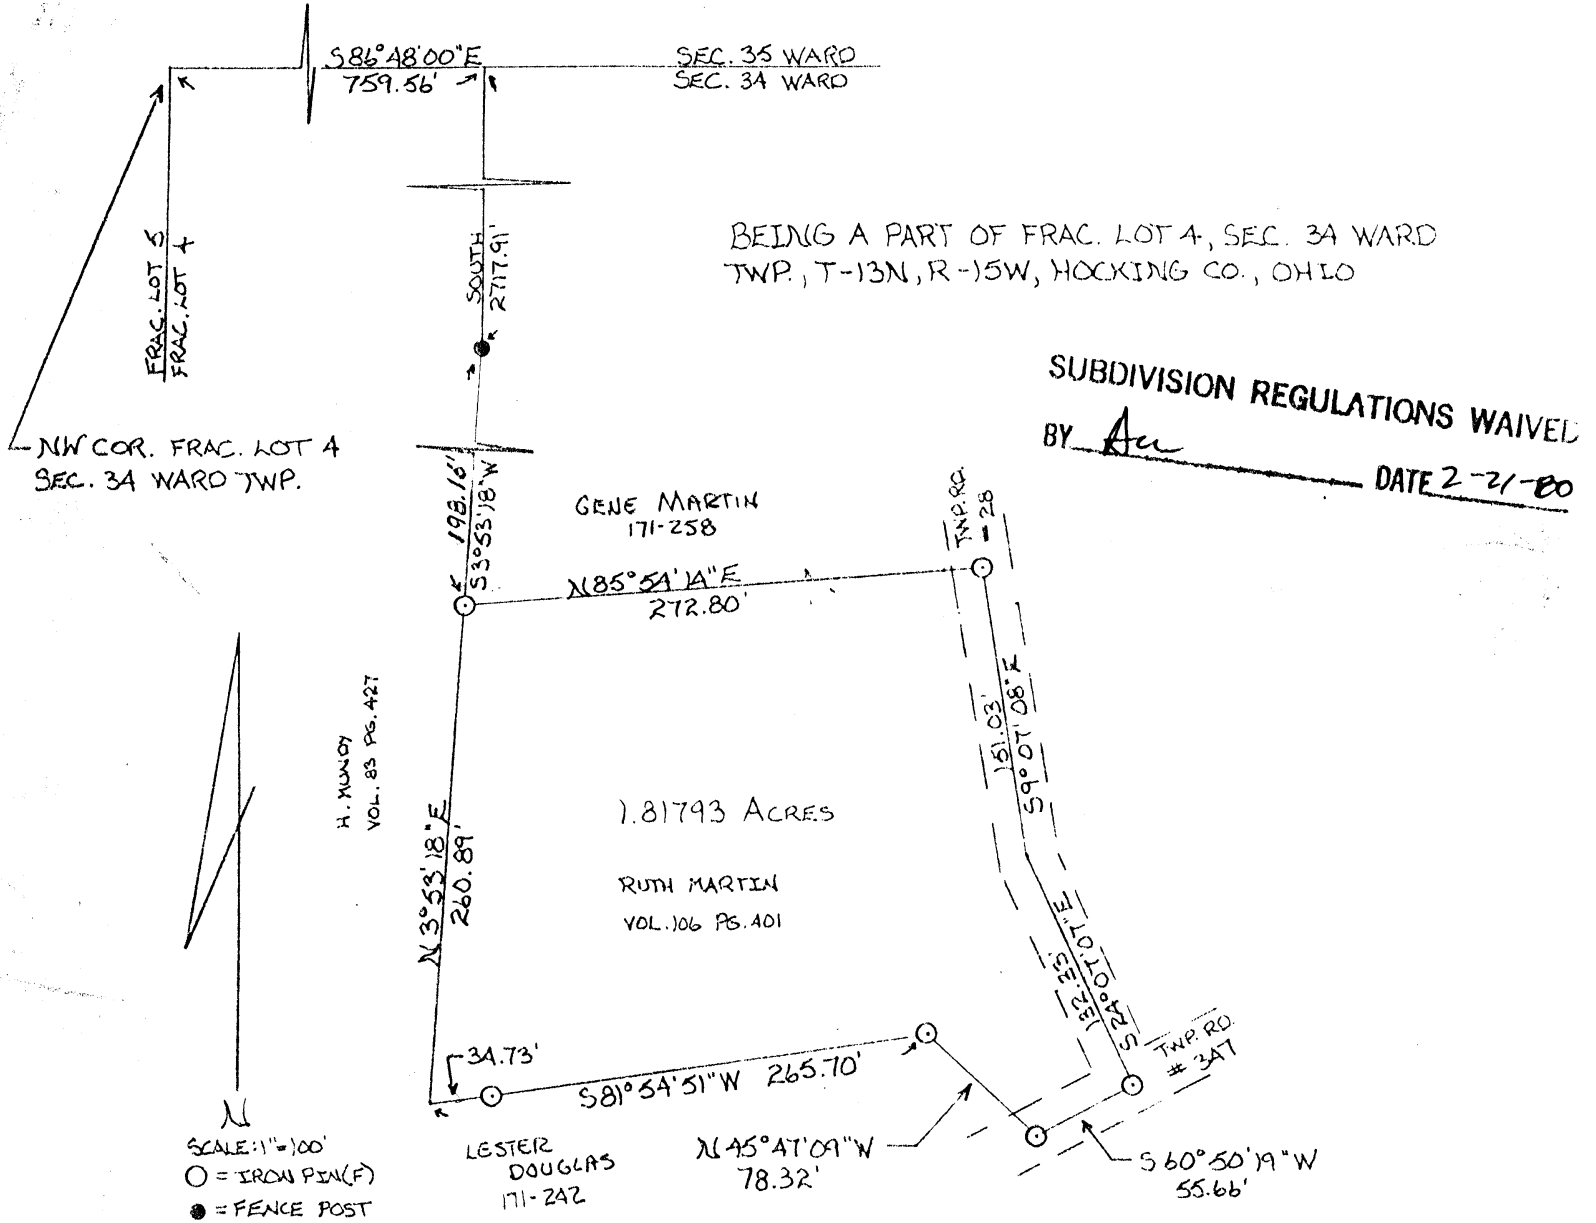 S86°48'00"E
759.56'
SEC. 35 WARD
SEC. 34 WARD
FRAC. LOT 5
FRAC. LOT 4
SOUTH
2717.91'
BEING A PART OF FRAC. LOT 4, SEC. 34 WARD
TWP., T-13N, R-15W, HOCKING CO., OHIO
SUBDIVISION REGULATIONS WAIVED
BY
DATE 2-21-80
NW COR. FRAC. LOT 4
SEC. 34 WARD TWP.
198.16'
S3°53'18"W
GENE MARTIN
171-258
TWP. RD.
28
N85°54'14"E
272.80'
H. MUNDY
VOL. 83 PG. 427
151.03'
S9°07'08"E
1.81793 ACRES
RUTH MARTIN
VOL. 106 PG. 401
N3°53'18"E
260.89'
S24°07'07"E
TWP. RD.
# 347
34.73'
S81°54'51"W 265.70'
N
SCALE: 1"=100'
O = IRON PIN(F)
● = FENCE POST
LESTER
DOUGLAS
171-242
N45°47'09"W
78.32'
S60°50'19"W
55.66'